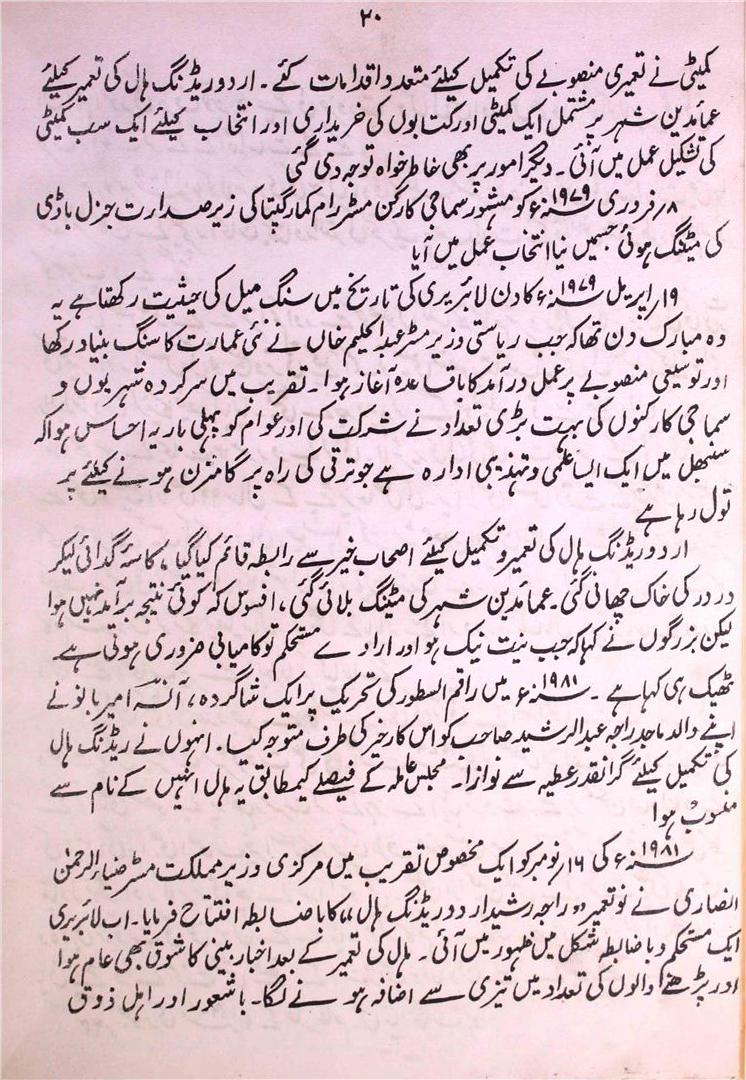 ۲۰
کمیٹی نے تعمیری منصوبے کی تکمیل کیلئے متعدد اقدامات کئے۔ اردو ریڈنگ ہال کی تعمیر کیلئے
عمائدین شہر پر مشتمل ایک کمیٹی اور کتابوں کی خریداری اور انتخاب کیلئے ایک سب کمیٹی
کی تشکیل عمل میں آئی۔ دیگر امور پر بھی خاطر خواہ توجہ دی گئی
۸؍ فروری ۱۹۷۹ء کو مشہور سماجی کارکن مسٹر رام کمار گپتا کی زیر صدارت جنرل باڈی
کی میٹنگ ہوئی جسمیں نیا انتخاب عمل میں آیا
۱۹؍ اپریل ۱۹۷۹ء کا دن لائبریری کی تاریخ میں سنگ میل کی حیثیت رکھتا ہے یہ
وہ مبارک دن تھا کہ جب ریاستی وزیر مسٹر عبدالحلیم خاں نے نئی عمارت کا سنگ بنیاد رکھا
اور توسیعی منصوبے پر عمل درآمد کا باقاعدہ آغاز ہوا۔ تقریب میں سرکردہ شہریوں و
سماجی کارکنوں کی بہت بڑی تعداد نے شرکت کی اور عوام کو پہلی بار یہ احساس ہوا کہ
سنبھل میں ایک ایسا علمی و تہذیبی ادارہ ہے جو ترقی کی راہ پر گامزن ہونے کیلئے پر
تول رہا ہے
اردو ریڈنگ ہال کی تعمیر و تکمیل کیلئے اصحاب خیر سے رابطہ قائم کیا گیا، کاسۂ گدائی لیکر
در در کی خاک چھانی گئی۔ عمائدین شہر کی میٹنگ بلائی گئی، افسوس کہ کوئی نتیجہ برآمد نہیں ہوا
لیکن بزرگوں نے کہا کہ جب نیت نیک ہو اور ارادے مستحکم تو کامیابی ضروری ہوتی ہے
ٹھیک ہی کہا ہے۔ ۱۹۸۱ء میں راقم السطور کی تحریک پر ایک شاگردہ، آنسہ امیر بانو نے
اپنے والد ماجد راجہ عبدالرشید صاحب کو اس کار خیر کی طرف متوجہ کیا۔ انہوں نے ریڈنگ ہال
کی تکمیل کیلئے گرانقدر عطیہ سے نوازا۔ مجلس عاملہ کے فیصلے کیمطابق یہ ہال انہیں کے نام سے
منسوب ہوا
۱۹۸۱ء کی ۱۶؍ نومبر کو ایک مخصوص تقریب میں مرکزی وزیر مملکت مسٹر ضیاء الرحمٰن
انصاری نے نو تعمیر ”راجہ رشید اردو ریڈنگ ہال“ کا باضابطہ افتتاح فرمایا۔ اب لائبریری
ایک مستحکم و باضابطہ شکل میں ظہور میں آئی۔ ہال کی تعمیر کے بعد اخبار بینی کا شوق بھی عام ہوا
اور پڑھنے والوں کی تعداد میں تیزی سے اضافہ ہونے لگا۔ باشعور اور اہل ذوق